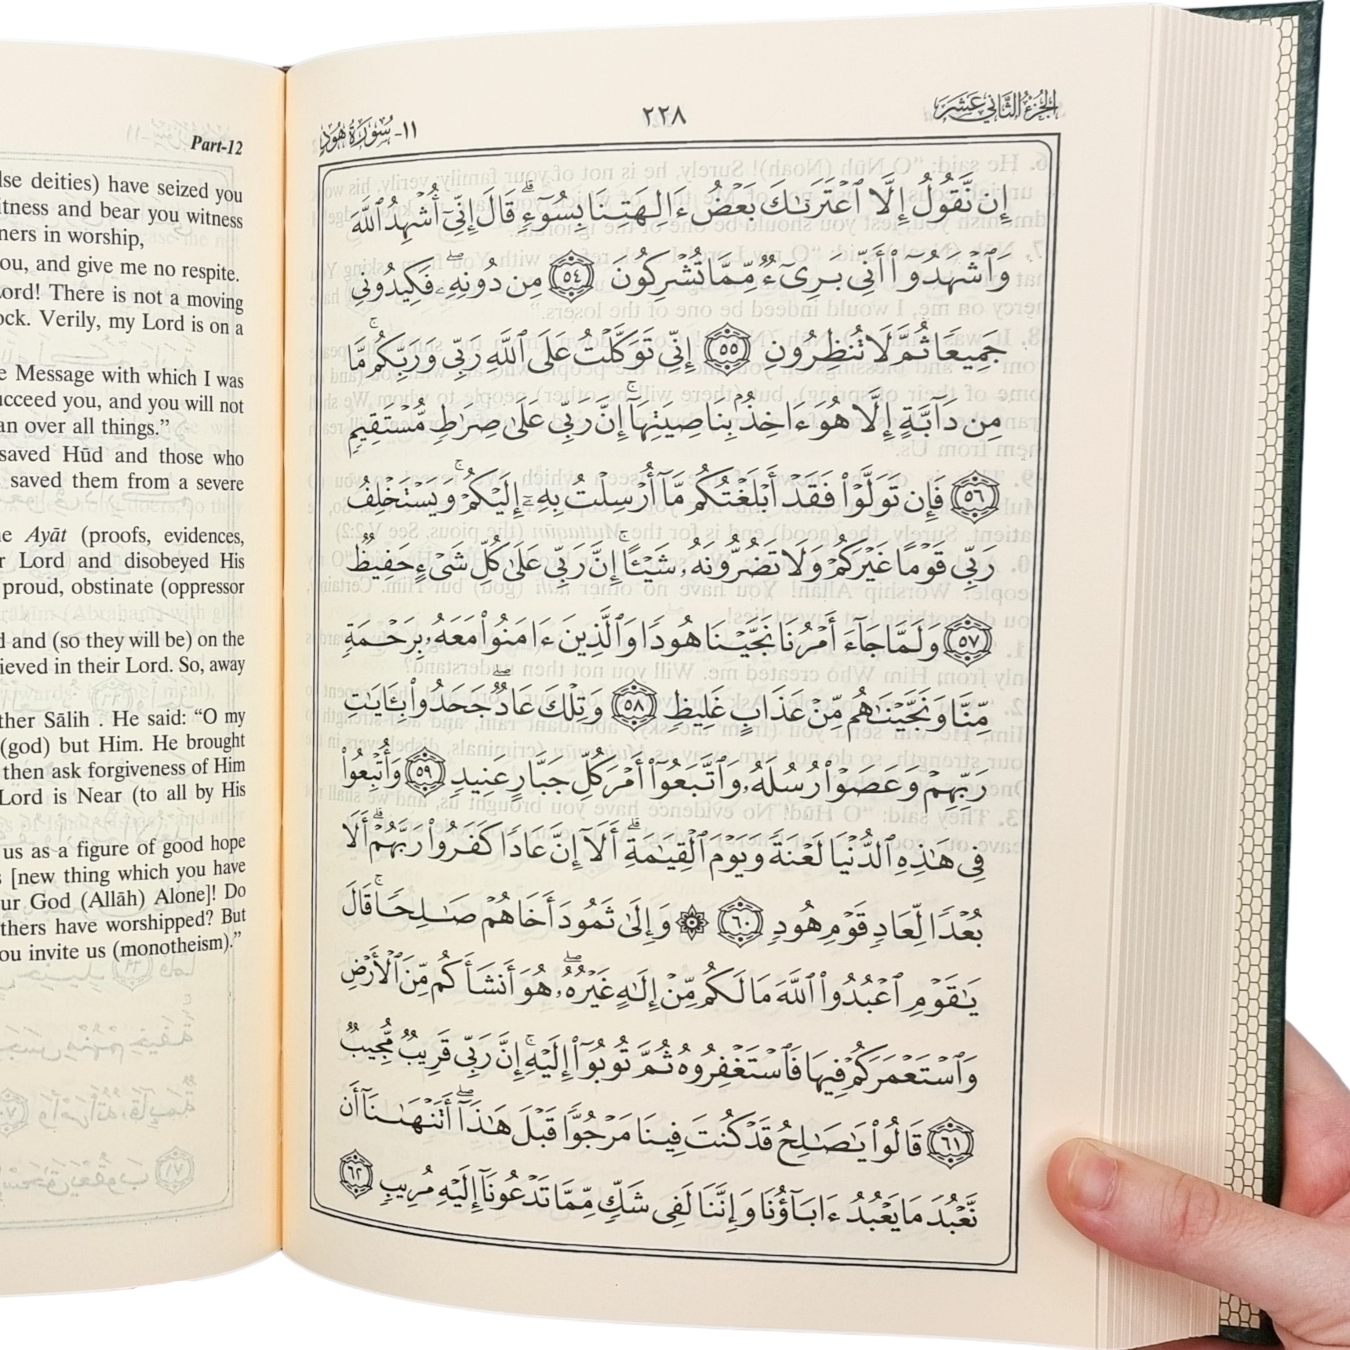 Part-12
lse deities) have seized you
itness and bear you witness
ners in worship,
ou, and give me no respite.
Lord! There is not a moving
ock. Verily, my Lord is on a
e Message with which I was
ucceed you, and you will not
an over all things.”
saved Hūd and those who
saved them from a severe
ne Ayāt (proofs, evidences,
r Lord and disobeyed His
proud, obstinate (oppressor
d and (so they will be) on the
ieved in their Lord. So, away
ther Sālih . He said: “O my
(god) but Him. He brought
then ask forgiveness of Him
Lord is Near (to all by His
us as a figure of good hope
s [new thing which you have
ur God (Allāh) Alone]! Do
thers have worshipped? But
ou invite us (monotheism).”
الجزء الثاني عشر ٢٢٨ ١١- سورة هود
إِن نَّقُولُ إِلَّا ٱعْتَرَىٰكَ بَعْضُ ءَالِهَتِنَا بِسُوٓءٍۗ قَالَ إِنِّىٓ أُشْهِدُ ٱللَّهَ
وَٱشْهَدُوٓا۟ أَنِّى بَرِىٓءٌ مِّمَّا تُشْرِكُونَ ٥٤ مِن دُونِهِۦۖ فَكِيدُونِى
جَمِيعًا ثُمَّ لَا تُنظِرُونِ ٥٥ إِنِّى تَوَكَّلْتُ عَلَى ٱللَّهِ رَبِّى وَرَبِّكُمۚ مَّا
مِن دَآبَّةٍ إِلَّا هُوَ ءَاخِذٌۢ بِنَاصِيَتِهَآۚ إِنَّ رَبِّى عَلَىٰ صِرَٰطٍ مُّسْتَقِيمٍ
٥٦ فَإِن تَوَلَّوْا۟ فَقَدْ أَبْلَغْتُكُم مَّآ أُرْسِلْتُ بِهِۦٓ إِلَيْكُمْۚ وَيَسْتَخْلِفُ
رَبِّى قَوْمًا غَيْرَكُمْ وَلَا تَضُرُّونَهُۥ شَيْـًٔاۚ إِنَّ رَبِّى عَلَىٰ كُلِّ شَىْءٍ حَفِيظٌ
٥٧ وَلَمَّا جَآءَ أَمْرُنَا نَجَّيْنَا هُودًا وَٱلَّذِينَ ءَامَنُوا۟ مَعَهُۥ بِرَحْمَةٍ
مِّنَّا وَنَجَّيْنَٰهُم مِّنْ عَذَابٍ غَلِيظٍ ٥٨ وَتِلْكَ عَادٌۖ جَحَدُوا۟ بِـَٔايَٰتِ
رَبِّهِمْ وَعَصَوْا۟ رُسُلَهُۥ وَٱتَّبَعُوٓا۟ أَمْرَ كُلِّ جَبَّارٍ عَنِيدٍ ٥٩ وَأُتْبِعُوا۟
فِى هَٰذِهِ ٱلدُّنْيَا لَعْنَةً وَيَوْمَ ٱلْقِيَٰمَةِۗ أَلَآ إِنَّ عَادًا كَفَرُوا۟ رَبَّهُمْۗ أَلَا
بُعْدًا لِّعَادٍ قَوْمِ هُودٍ ٦٠ ۞ وَإِلَىٰ ثَمُودَ أَخَاهُمْ صَٰلِحًاۚ قَالَ
يَٰقَوْمِ ٱعْبُدُوا۟ ٱللَّهَ مَا لَكُم مِّنْ إِلَٰهٍ غَيْرُهُۥۖ هُوَ أَنشَأَكُم مِّنَ ٱلْأَرْضِ
وَٱسْتَعْمَرَكُمْ فِيهَا فَٱسْتَغْفِرُوهُ ثُمَّ تُوبُوٓا۟ إِلَيْهِۚ إِنَّ رَبِّى قَرِيبٌ مُّجِيبٌ
٦١ قَالُوا۟ يَٰصَٰلِحُ قَدْ كُنتَ فِينَا مَرْجُوًّا قَبْلَ هَٰذَآۖ أَتَنْهَىٰنَآ أَن
نَّعْبُدَ مَا يَعْبُدُ ءَابَآؤُنَا وَإِنَّنَا لَفِى شَكٍّ مِّمَّا تَدْعُونَآ إِلَيْهِ مُرِيبٍ ٦٢